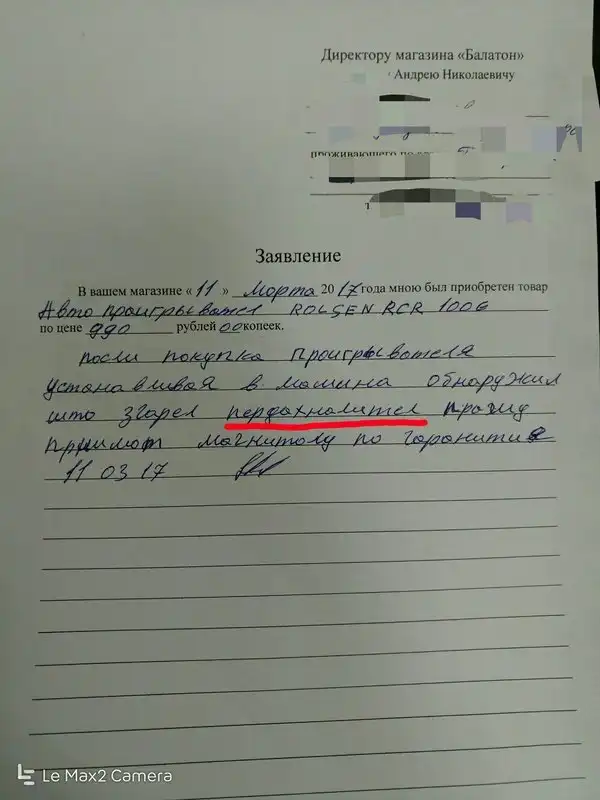 Директору магазина «Балатон»
Андрею Николаевичу
Заявление
В вашем магазине « 11 » Марта 20 17 года мною был приобретен товар
Авто проигрывател ROLSEN RCR 100G
по цене 990 рублей 00 копеек.
посли покупка проигрывателя
устанавливая в машина обнаружил
што згарел пердахналител прашу
принимат магнитолу по гарантие
11 03 17
Le Max2 Camera